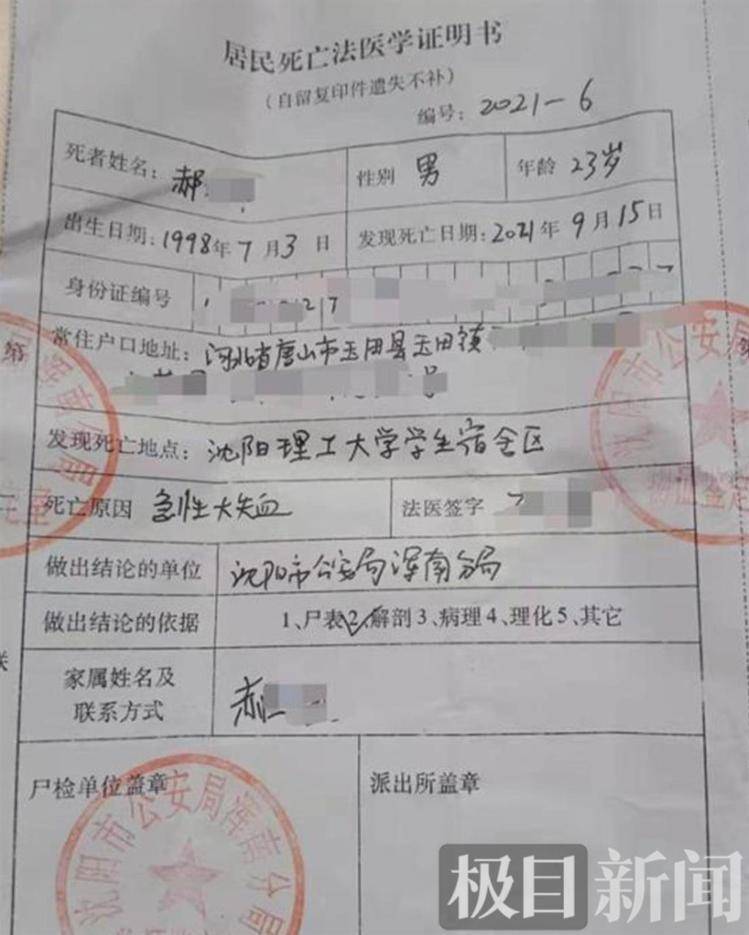 居民死亡法医学证明书
（自留复印件遗失不补）
编号：2021-6
死者姓名：郝 性别 男 年龄 23岁
出生日期：1998年7月3日 发现死亡日期：2021年9月15日
身份证编号 1 217 7
常住户口地址：河北省唐山市玉田县玉田镇
号
发现死亡地点：沈阳理工大学学生宿舍区
死亡原因 急性大失血 法医签字
做出结论的单位 沈阳市公安局浑南分局
做出结论的依据 1、尸表2、解剖3、病理4、理化5、其它
家属姓名及
联系方式 郝
尸检单位盖章 派出所盖章
沈阳市公安局浑南分局
沈阳市公安局
第
联
极目新闻